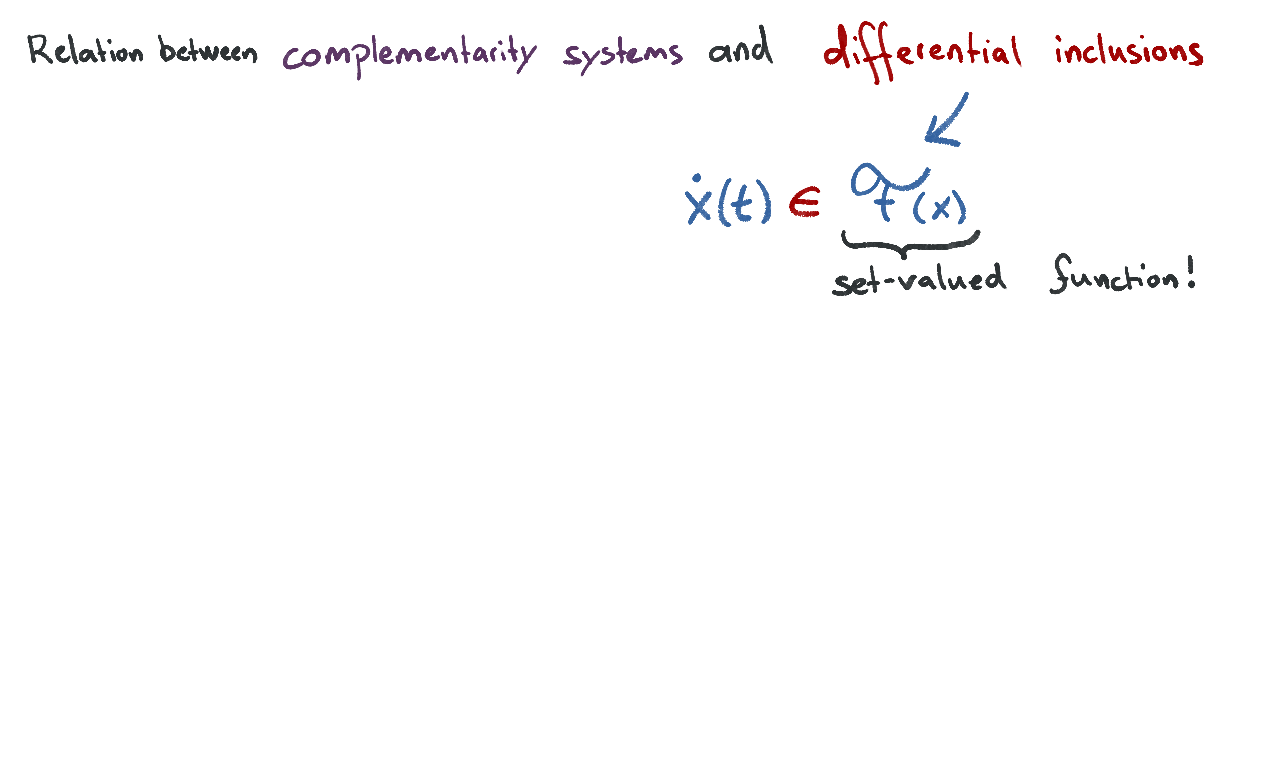 Relation between complementarity systems and differential inclusions
ẋ(t) ∈ ℱ(x)
set-valued function!